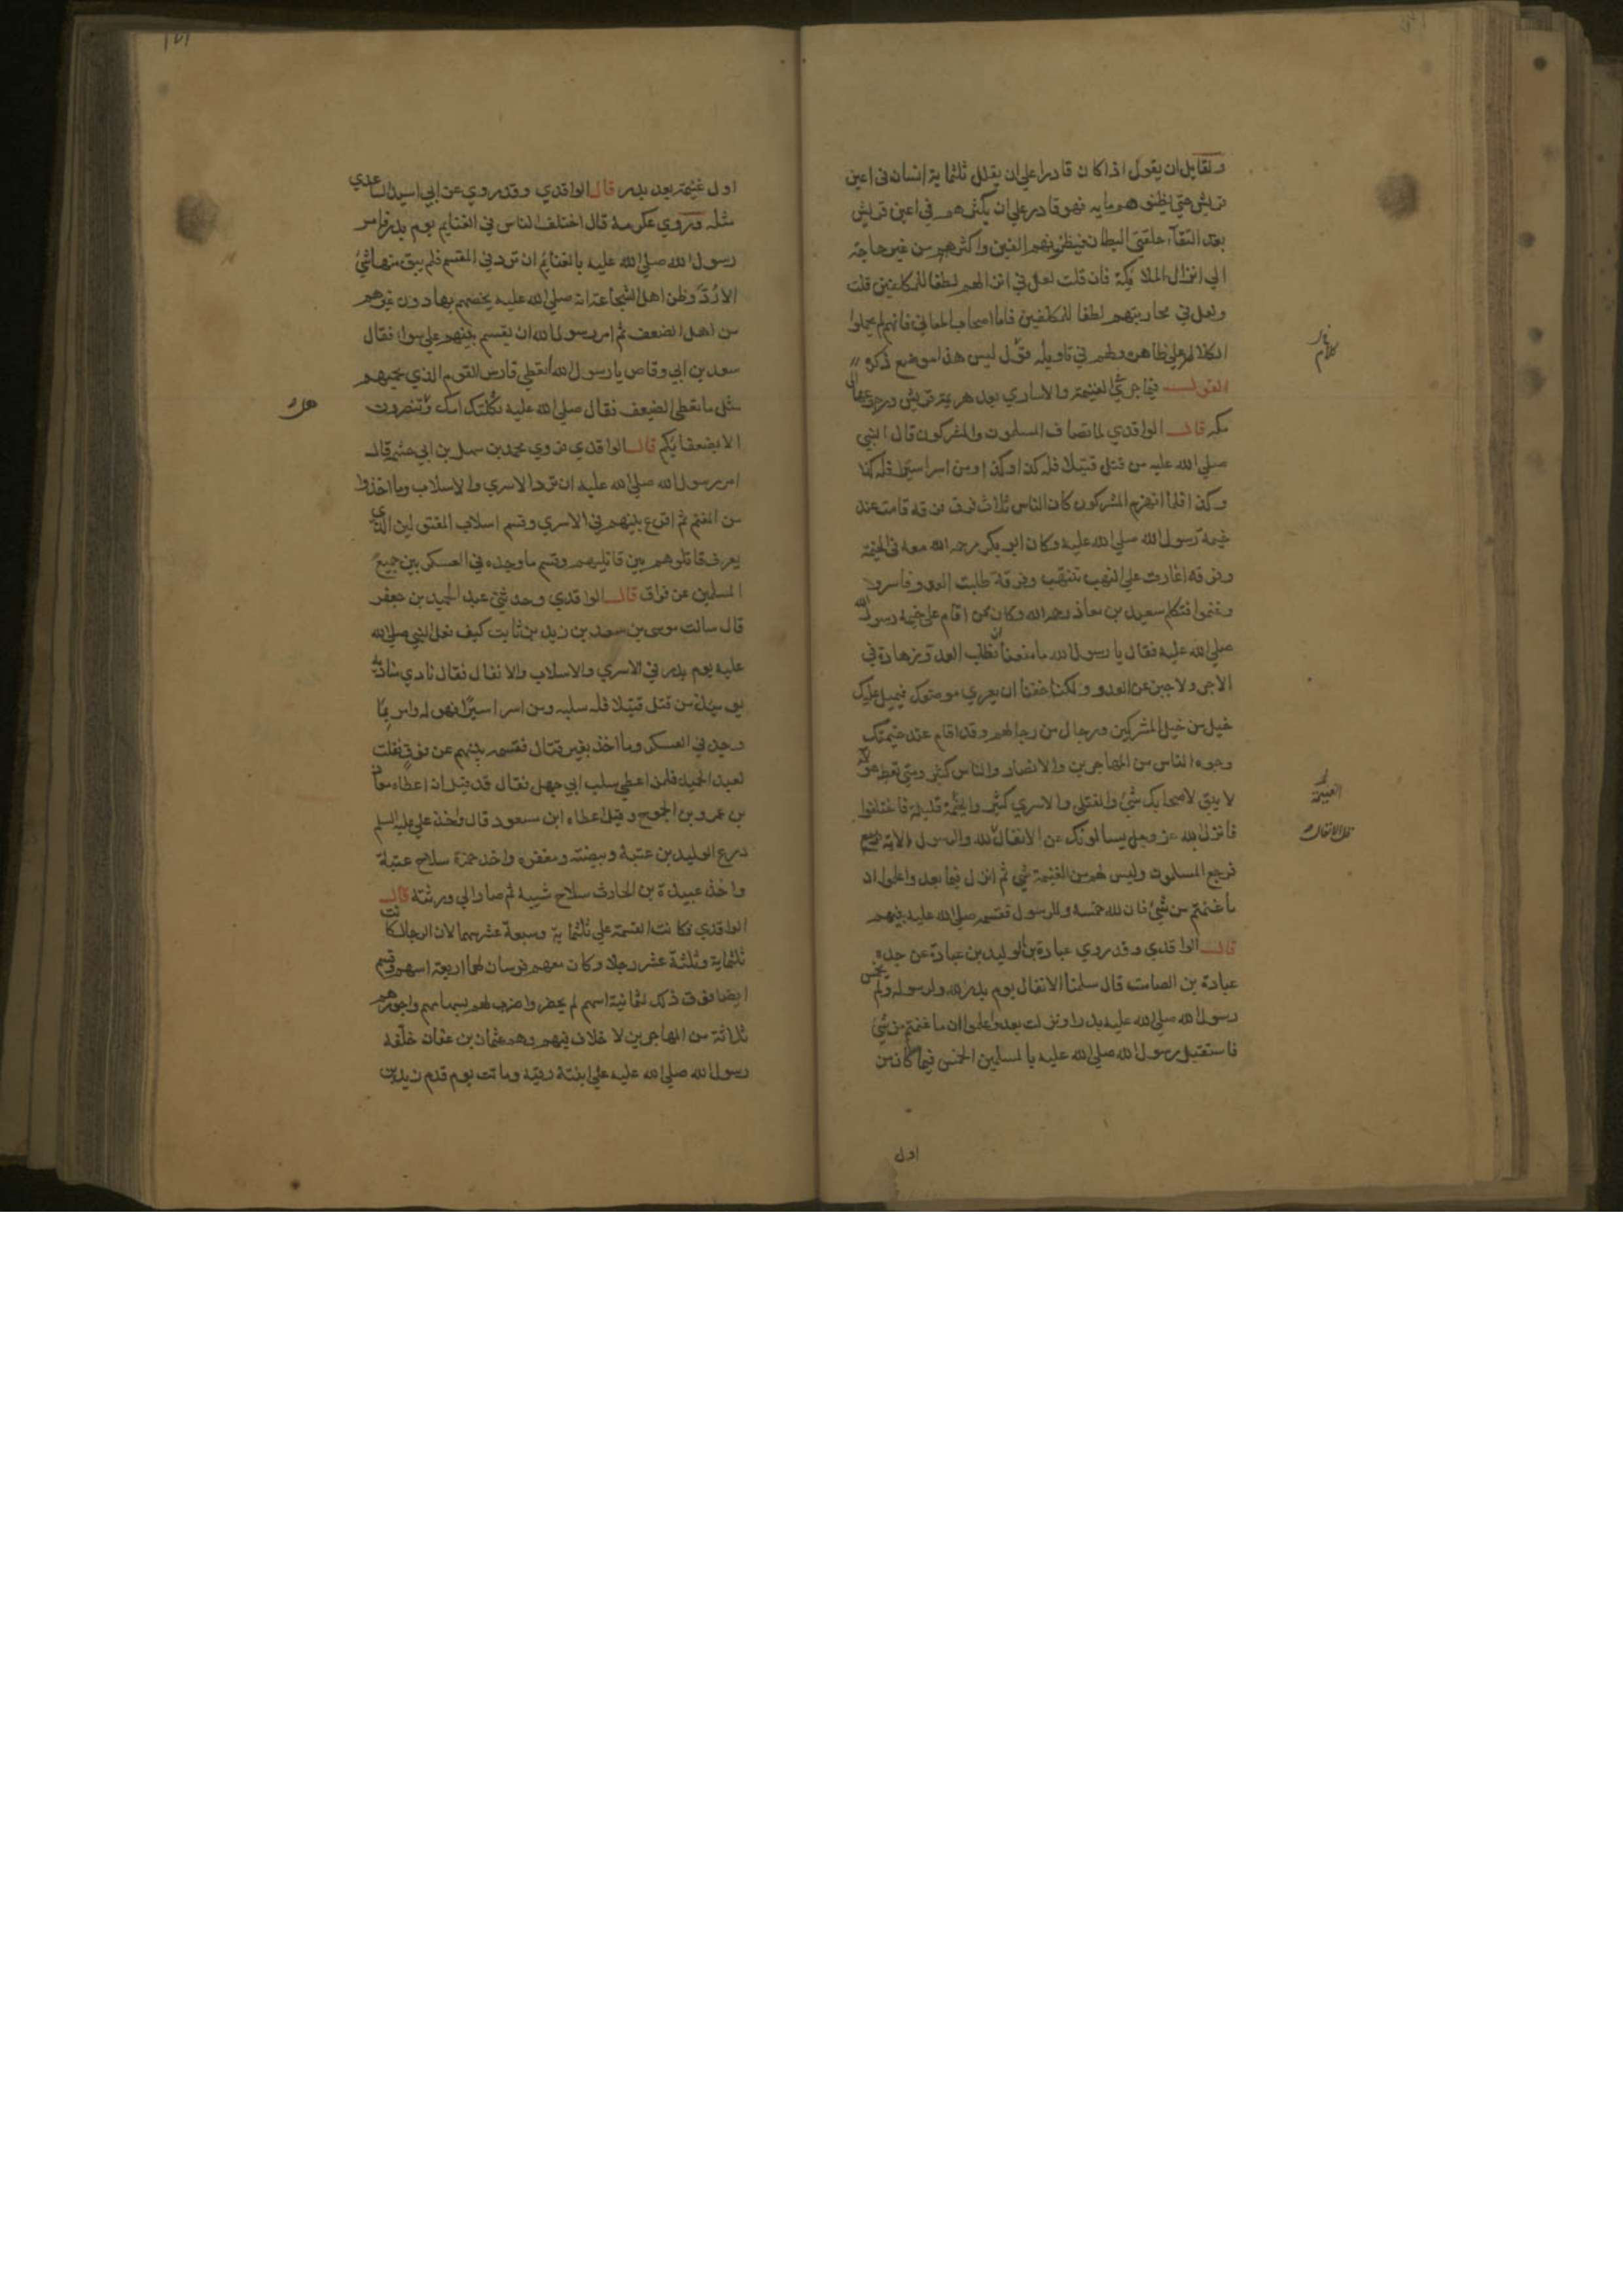 ولقايل ان يقول اذا كان قادرا على ان يقلل ثلثماية انسان في اعين
قريش حتى يظنوهم ماية فهو قادر على ان يكثرهم في اعين قريش
بعد التقآء حلقتي البطان فيظنونهم الفين واكثرهم من غير حاجة
الي انزال الملايكة فان قلت لعل في انزالهم لطفا للمكلفين قلت
ولعل في محاربتهم لطفا للمكلفين فاما اصحاب المعاني فانهم لم يحملوا
الكلام على ظاهره ولهم في تاويله قول ليس هذا موضع ذكره
القول فيما جرى في الغنيمة والاساري بعد هزيمة قريش ورجوعها الى
مكه قال الواقدي لما تصاف المسلمون والمشركون قال النبي
صلي الله عليه من قتل قتيلا فله كذا وكذا ومن اسر اسيرا فله كذا
وكذا فلما انهزم المشركون كان الناس ثلاث فرق فرقه قامت عند
خيمة رسول الله صلي الله عليه وكان ابو بكر رحمه الله معه في الخيمة
وفرقه اغارت علي النهب تنتهب وفرقة طلبت العدو فاسروا
وغنموا فتكلم سعيد بن معاذ رحمه الله وكان ممن اقام على خيمة رسول الله
صلي الله عليه فقال يا رسول الله ما منعنا ان نطلب العدو زهادة في
الاجر ولا جبن عن العدو ولكنا خفنا ان يعري موضعك فيميل عليك
خيل من خيل المشركين ورجال من رجالهم وقد اقام عند خيمتك
وجوه الناس من المهاجرين والانصار والناس كثير ومتي تعط هؤلاء
لا يبق لاصحابك شئ والقتلي والاسري كثير والغنيمة قليلة فاختلفوا
فانزل الله عز وجل يسالونك عن الانفال لله والرسول الاية
فرجع المسلمون وليس لهم من الغنيمة شي ثم انزل فيما بعد واعلموا ان
ما غنمتم من شئ فان لله خمسه وللرسول فقسمه صلي الله عليه بينهم
قال الواقدي وقد روي عبادة بن الوليد بن عبادة عن جده
عبادة بن الصامت قال سلمنا الانفال يوم بدر لله ولرسوله ولم يخمس
رسول الله صلي الله عليه بدرا ونزلت بعد واعلموا ان ما غنمتم من شئ
فاستقبل رسول الله صلي الله عليه بالمسلمين الخمس فيما كان من
اول
كلام
الغنيمة
اول غنيمة بعد بدر قال الواقدي وقد روي عن ابي اسيد الساعدي
مثله وروي عكرمة قال اختلف الناس في الغنايم يوم بدر فامر
رسول الله صلي الله عليه بالغنايم ان ترد في المقسم فلم يبق منها شئ
الا ردّ وظن اهل الشجاعة انه صلي الله عليه يخصهم بها دون غيرهم
من اهل الضعف ثم امر رسول الله ان يقسم بينهم على سوا فقال
سعد بن ابي وقاص يا رسول الله أتعطي فارس القوم الذي يحميهم
مثل ما تعطي الضعيف فقال صلي الله عليه ثكلتك امك وتنصرون
الا بضعفايكم قال الواقدي فروي محمد بن سهل بن ابي حثمه قال
امر رسول الله صلي الله عليه ان ترد الاسري والاسلاب وما اخذوا
من المغنم ثم اقرع بينهم في الاسري وقسم اسلاب المقتولين الذي
يعرف قاتلوهم بين قاتليهم وقسم ما وجده في العسكر بين جميع
المسلمين عن فواق قال الواقدي وحدثني عبد الحميد بن جعفر
قال سالت موسى بن سعد بن زيد بن ثابت كيف فعل النبي صلي الله
عليه يوم بدر في الاسري والاسلاب والانفال فقال نادي مناديه
يوميذ من قتل قتيلا فله سلبه ومن اسر اسيرا فهو له وامر بما
وجد في العسكر وما اخذ بغير قتال فقسمه بينهم عن فواق فقلت
لعبد الحميد فلمن اعطي سلب ابي جهل فقال قد قيل انه اعطاه معاذ
بن عمرو بن الجموح وقيل اعطاه ابن مسعود قال واخذ علي عليه السلم
درع الوليد بن عتبة وبيضته ومغفره واخذ حمزة سلاح عتبة
واخذ عبيدة بن الحارث سلاح شيبة ثم صار الي ورثته قال
الواقدي فكانت القسمة علي ثلثماية وسبعة عشر سهما لان الرجال كانت
ثلثماية وثلثة عشر رجلا وكان معهم فرسان لهما اربعة اسهم وقسم
ايضا فوق ذلك لثمانية اسهم لم يحضروا ضرب لهم بسهامهم واجورهم
ثلاثة من المهاجرين لا خلاف فيهم وهم عثمان بن عفان خلّفه
رسول الله صلي الله عليه علي ابنته رقية وماتت يوم قدم زيد بن